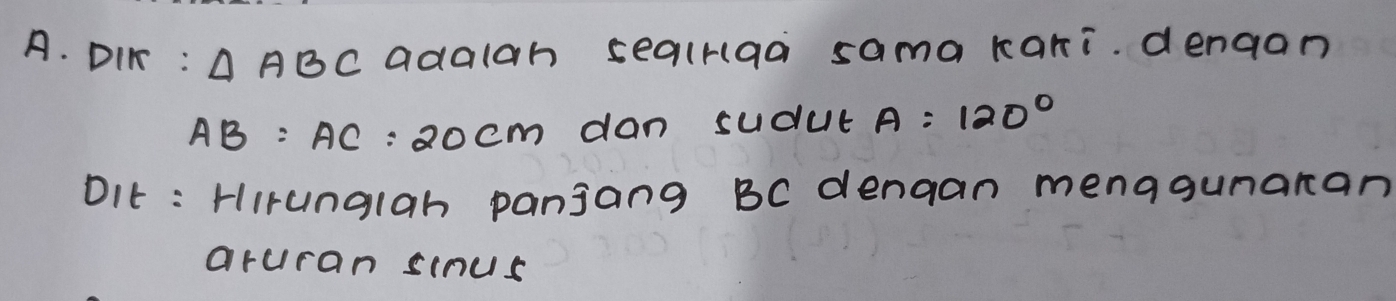 A. DIK : Δ ABC adalah segitiga sama kaki. dengan
AB : AC : 20cm dan sudut A : 120°
Dit : Hitunglah panjang BC dengan menggunakan
aturan sinus